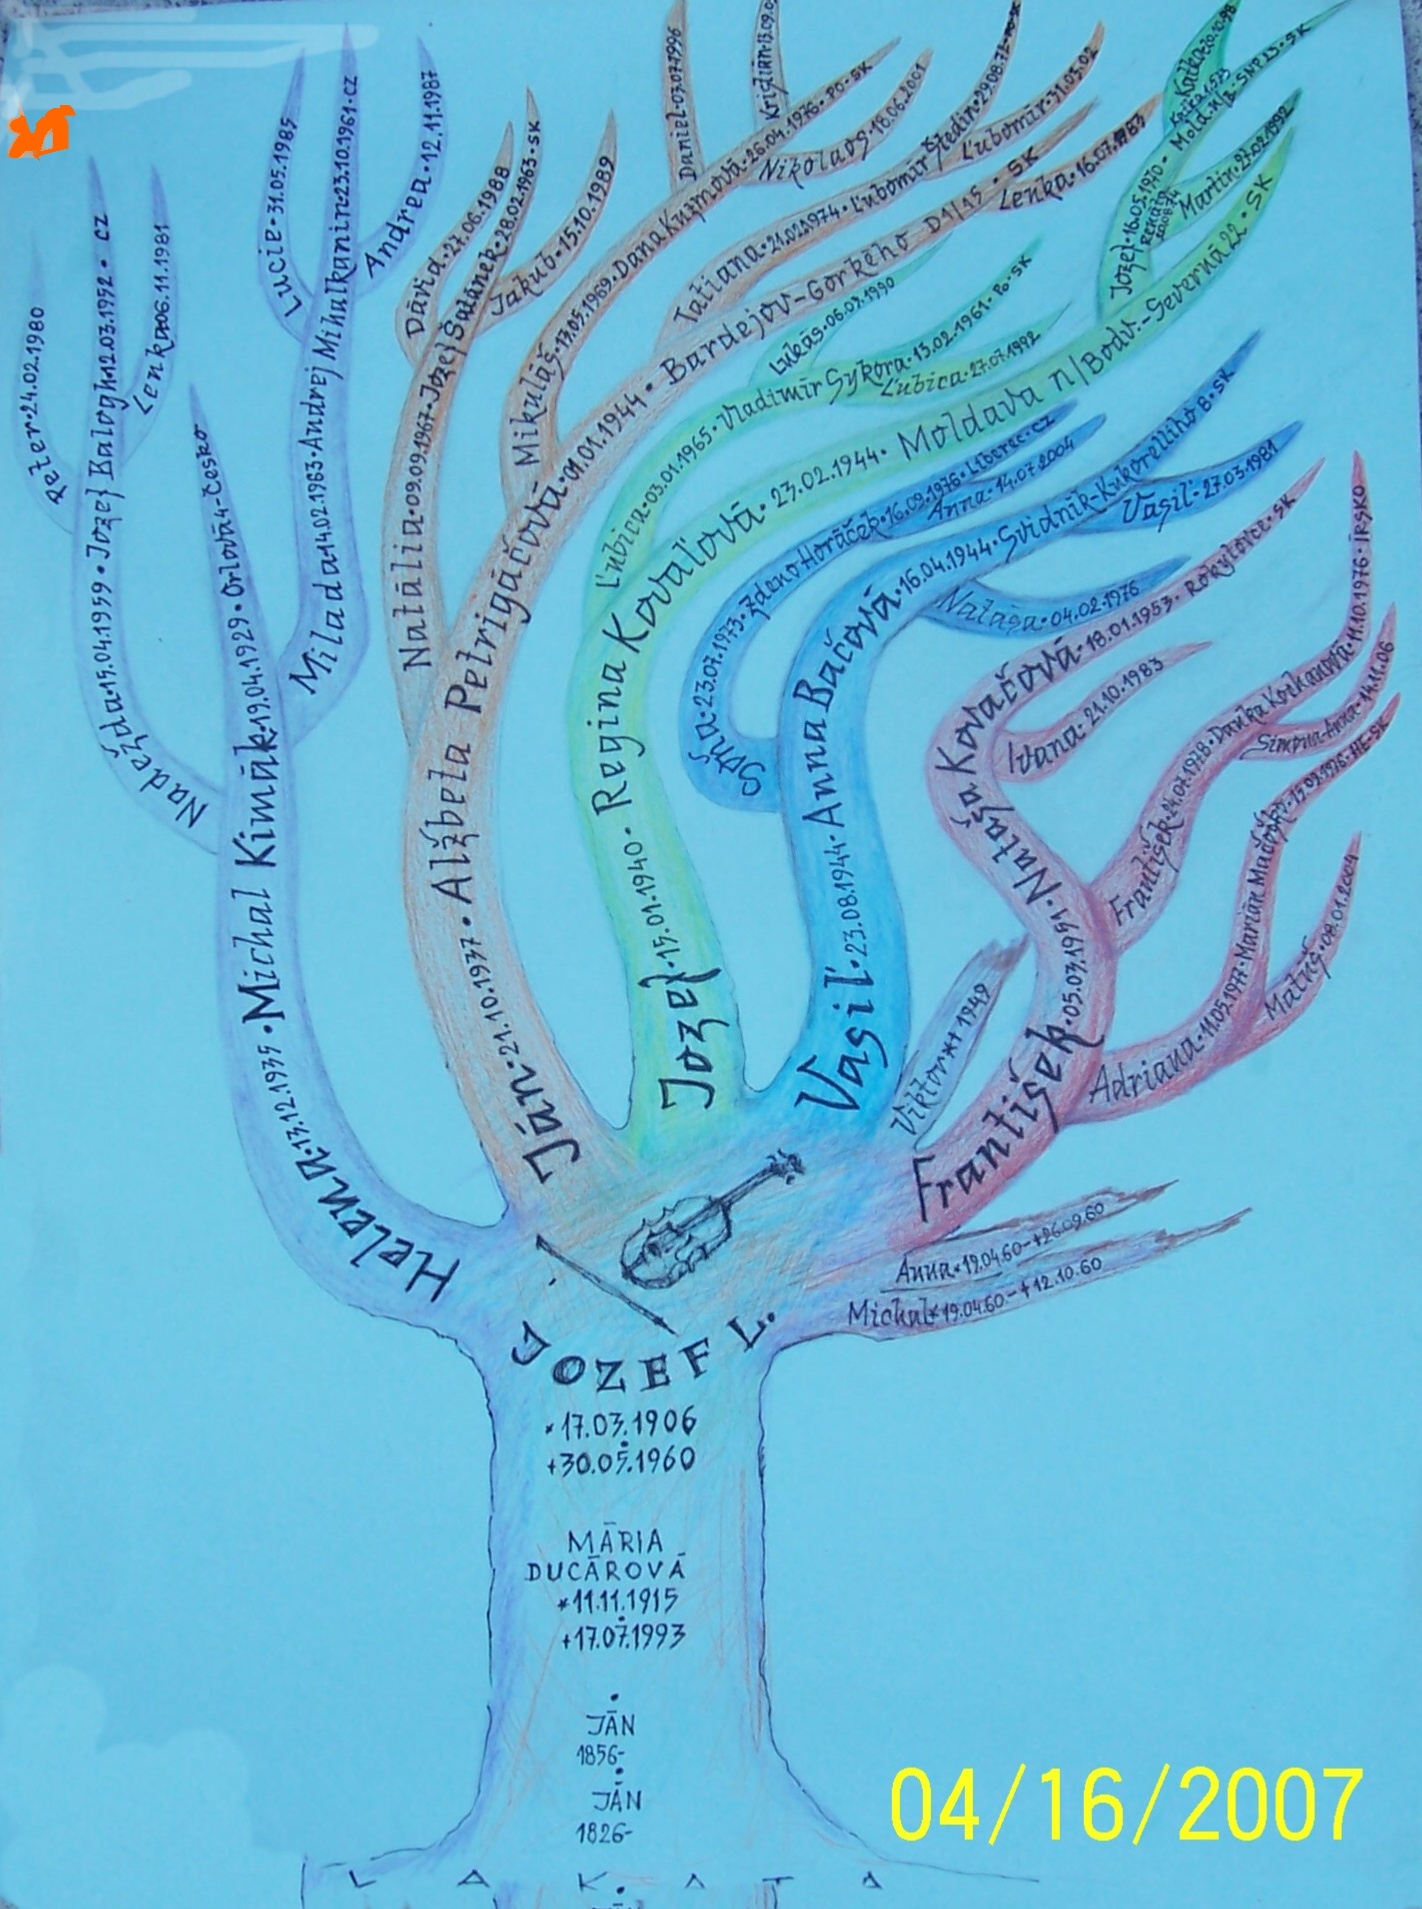 Peter•24.02.1980
Nadežda•15.04.1959•Jozef Balogh•12.03.1952•CZ
Lenka•06.11.1981
Helena•13.12.1935•Michal Kimák•19.04.1929•Orlová 4-Česko
Lucie•31.05.1985
Milada•14.02.1963•Andrej Mihalkanin•23.10.1961•CZ
Andrea•12.11.1987
Dávid•27.06.1988
Natália•09.09.1967•Jozef Sulánek•28.02.1963•SK
Jakub•15.10.1989
Ján•21.10.1937•Alžbeta Petrigáčová•01.01.1944•Bardejov-Gorkého D1/15•SK
Mikuláš•17.05.1969•Dana Kuzmová•26.04.1976•PO•SK
Daniel•03.07.1996
Kristián•13.09.0
Nikolaos•18.06.2001
Tatiana•21.02.1974•Ľubomír Štedin•29.08.72
Ľubomír•31.03.02
Lenka•16.07.1983
Jozef•15.01.1940•Regina Kovaľová•23.02.1944•Moldava n/Bodv.-Severná 22•SK
Ľubica•03.01.1965•Vladimír Sykora•13.02.1961•PO•SK
Lukás•06.09.1990
Ľubica•27.07.1992
Jozef•16.05.1970•
Martin•27.02.1992
Katka•20.10.98
Vasiľ•23.08.1944•Anna Bačová•16.04.1944•Svidník-Kukorelliho 8•SK
Soňa•23.07.1973•Zdeno Horáček•16.09.1976•Liberec•CZ
Anna•14.07.2004
Vasiľ•27.03.1981
Nataša•04.02.1976
Viktor*+1949
František•05.03.1951•Nataša Kovačová•18.01.1953•Rokytovce•SK
Ivana•21.10.1983
František•24.07.1978•Danka Kohanová•11.10.1976•ÍRSKO
Simona-Anna•14.11.06
Adriana•11.05.1977•Marián Mačoško•15.09.1976•HE•SK
Matúš•08.01.2004
Anna*19.04.60-+26.09.60
Michal*19.04.60-+12.10.60
JOZEF L.
*17.03.1906
+30.05.1960
MÁRIA
DUCÁROVÁ
*11.11.1915
+17.07.1993
JÁN
1856-
JÁN
1826-
LAKATA
04/16/2007